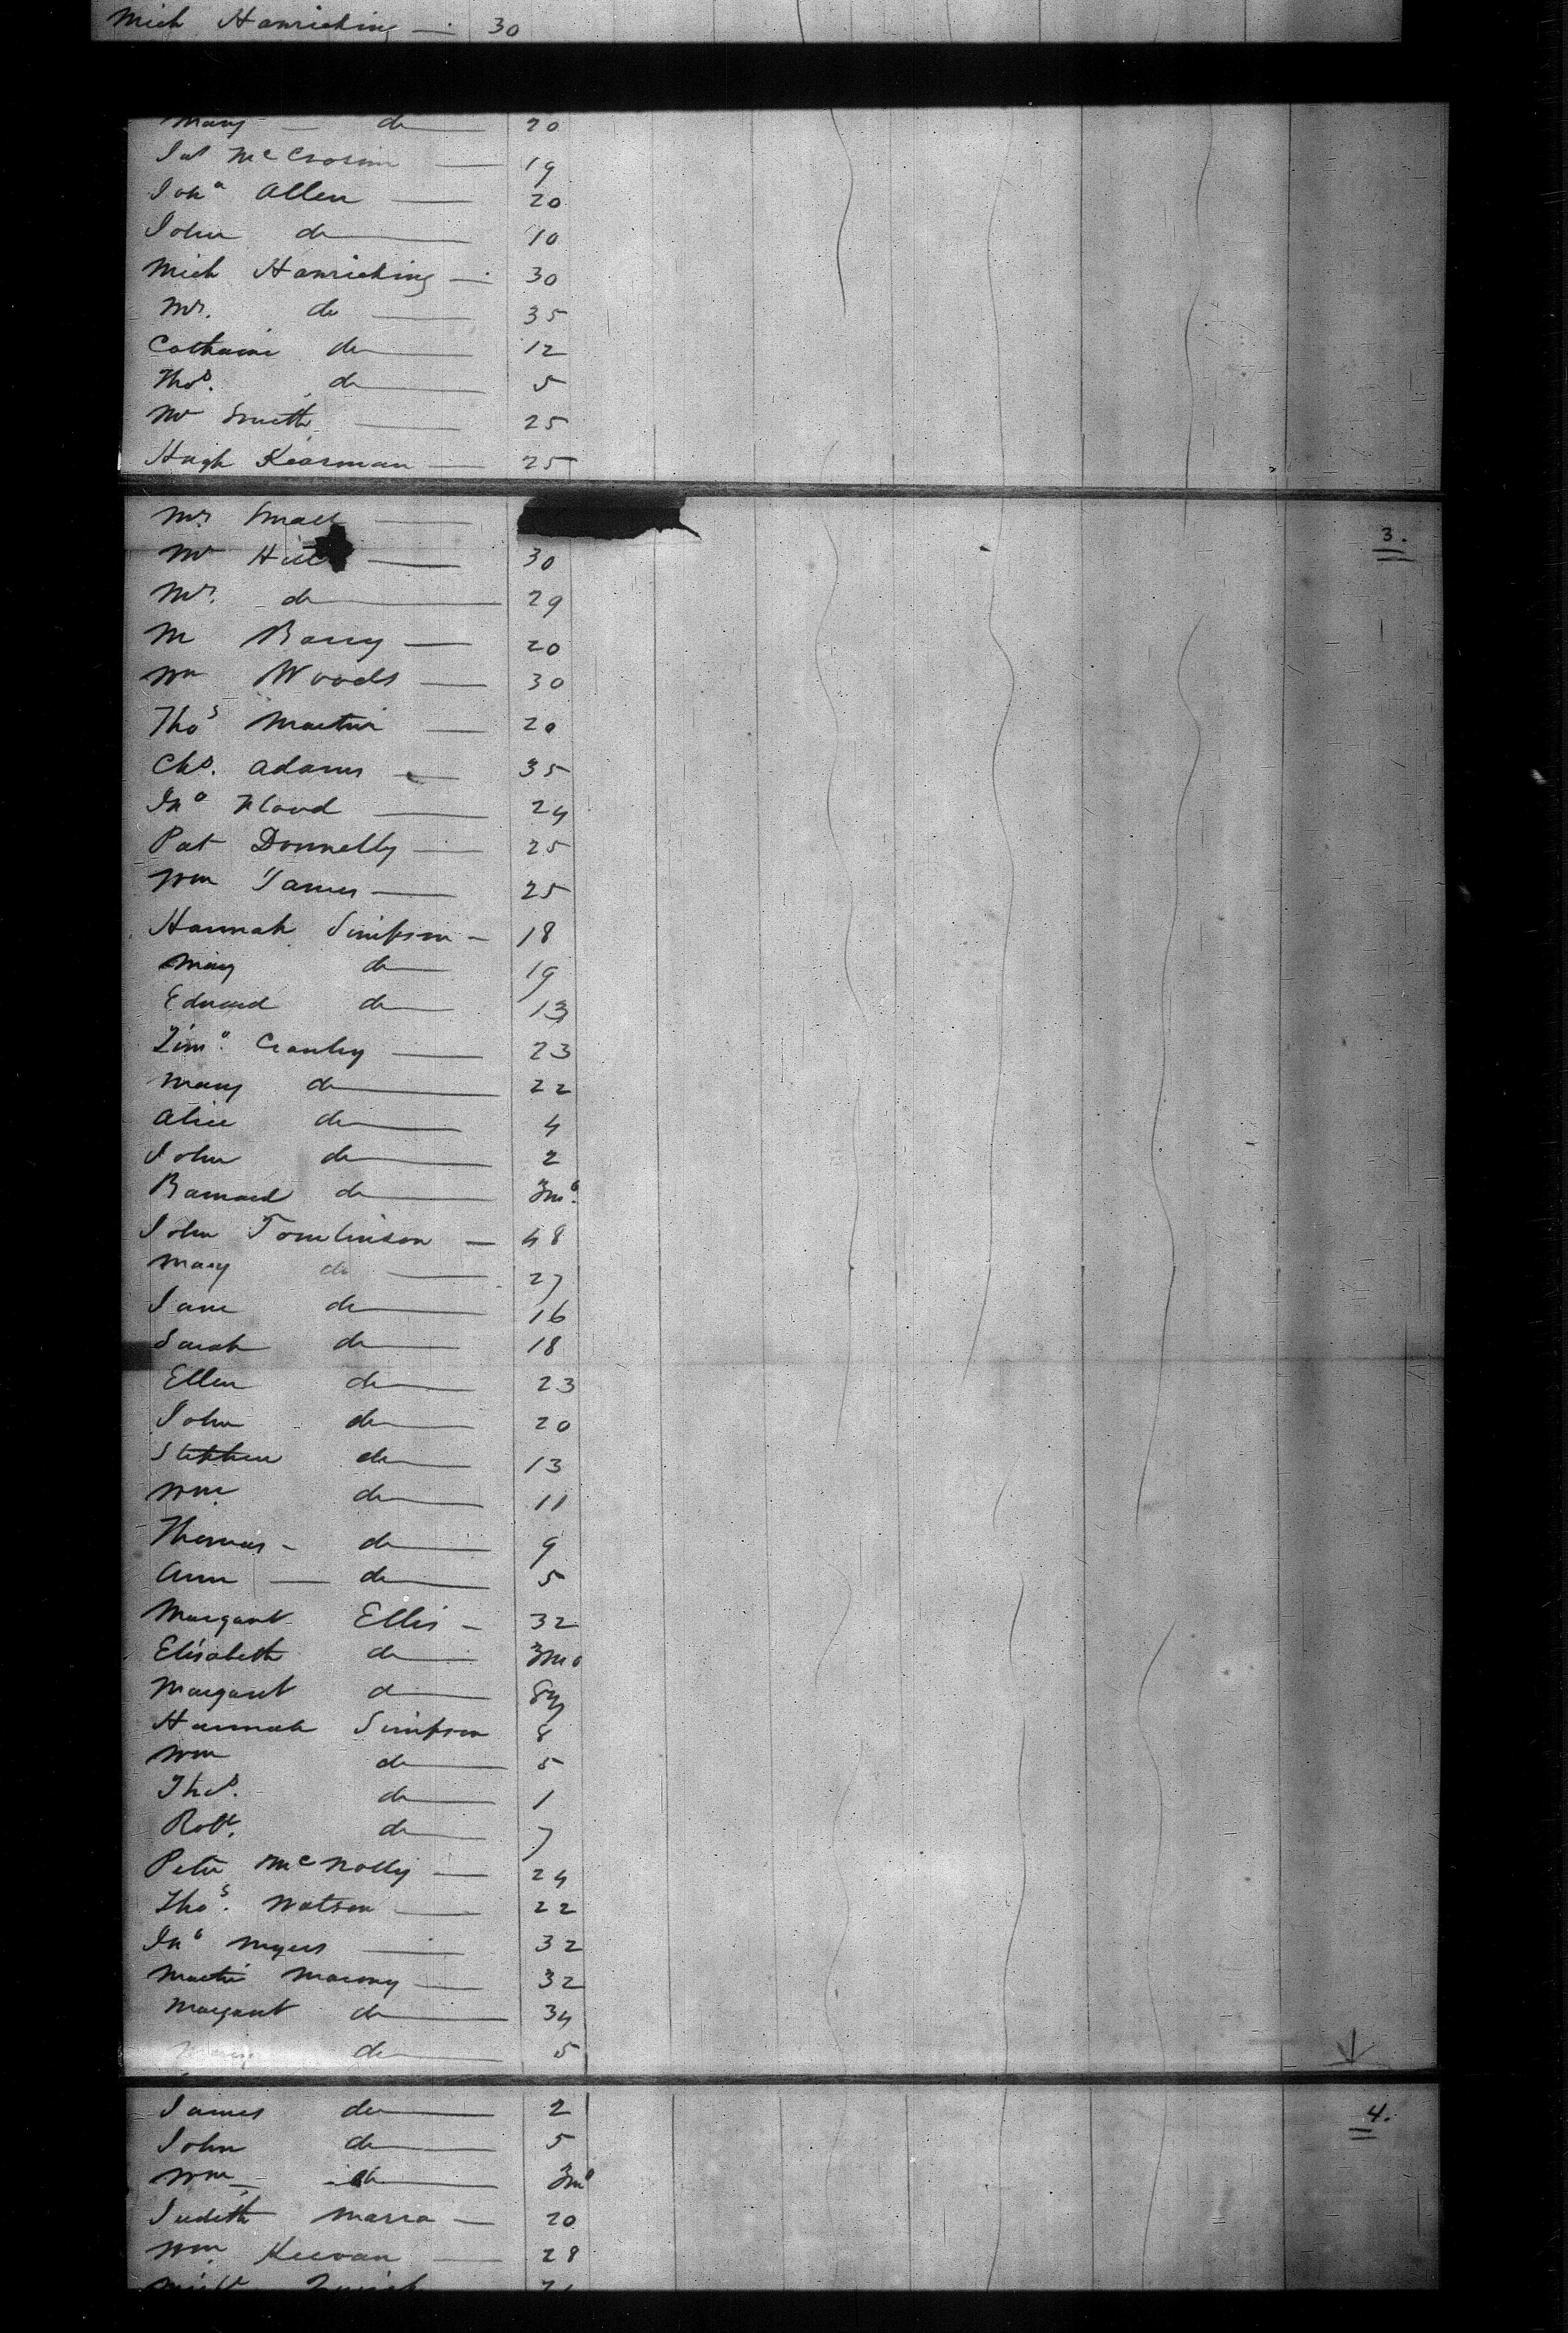 Mich Hamiching — 30
Mary — do 20
Jas McCrosin — 19
Jona Allen — 20
John do 10
Mich Hamiching — 30
Mrs. do — 35
Catharine do 12
Thos. do 5
Mr Smith — 25
Hugh Kearman — 25
Mrs Small —
3.
Mr — 30
Mrs. do 29
M Barry — 20
Wm Woods — 30
Thos Martin — 20
Chs. Adams — 35
Jno Flood — 24
Pat Donnelly — 25
Wm James — 25
Hannah Simpson — 18
Mary do 19
Edward do 13
Timo. Cranley — 23
Mary do 22
Alice do 4
John do 2
Barnard do 3mo.
John Tomlinson — 48
Mary do — 27
Jane do 16
Sarah do 18
Ellen do 23
John do 20
Stephen do 13
Wm do 11
Thomas - do 9
Ann — do 5
Margaret Ellis - 32
Elisabeth do 3mo
Margaret do 8y
Hannah Simpson 8
Wm do 5
Thos. do 1
Robt. do 7
Peter McNolly — 24
Thos. Watson — 22
Jno Myers — 32
Martin Marony — 32
Margaret do 34
Mary do 5
James do 2
4.
John do 5
Wm do 3mo
Judith Marra — 20
Wm Keevan — 28